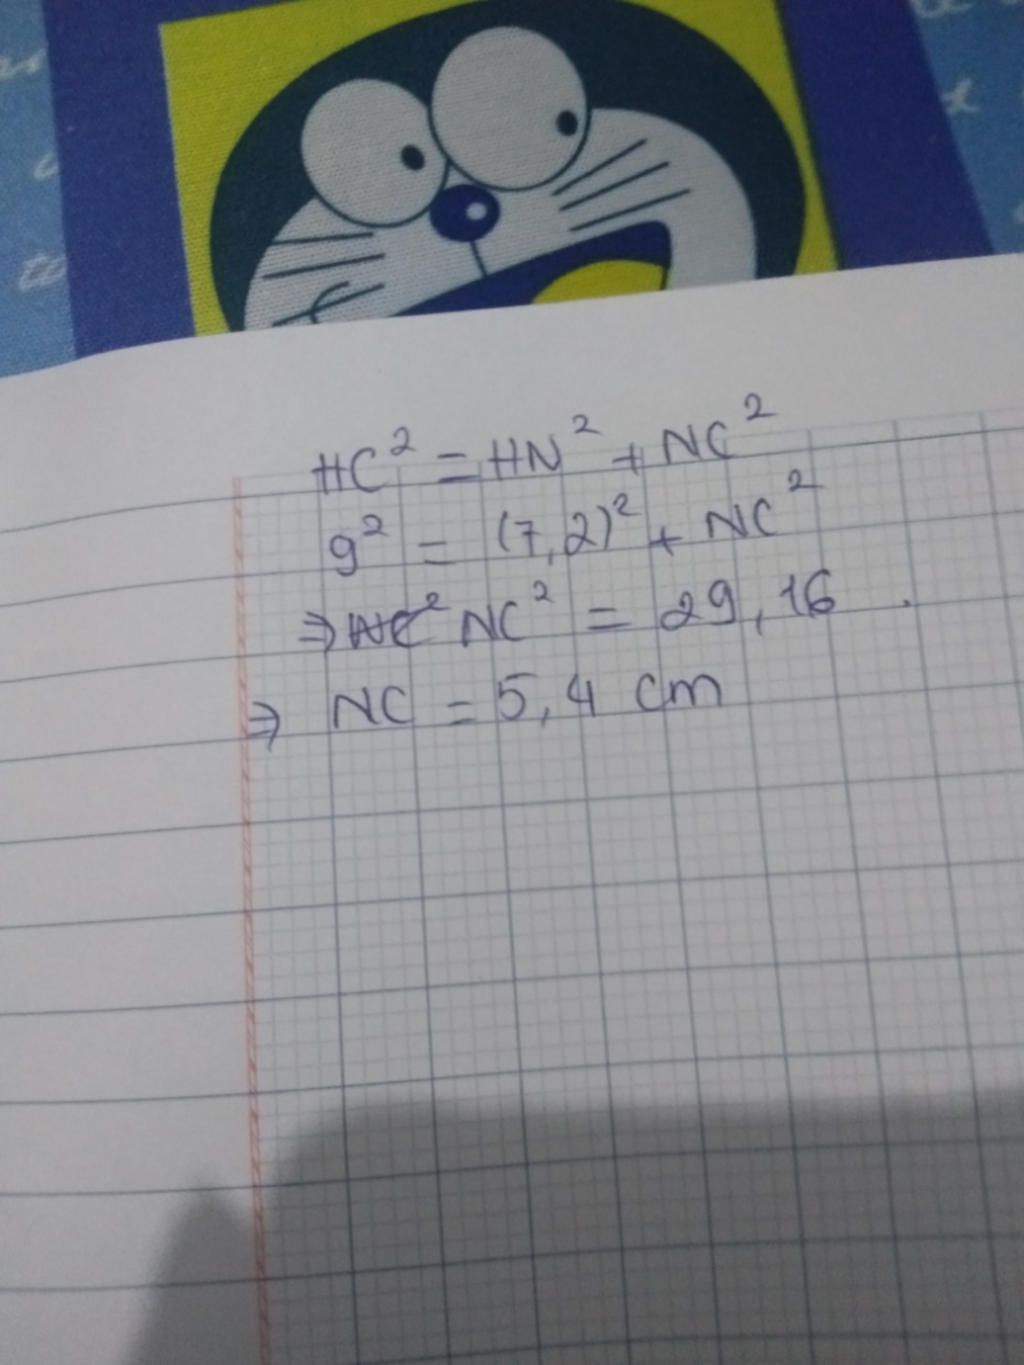 HC² = HN² + NC²
9² = (7,2)² + NC²
⇒ NC² NC² = 29,16
⇒ NC = 5,4 cm